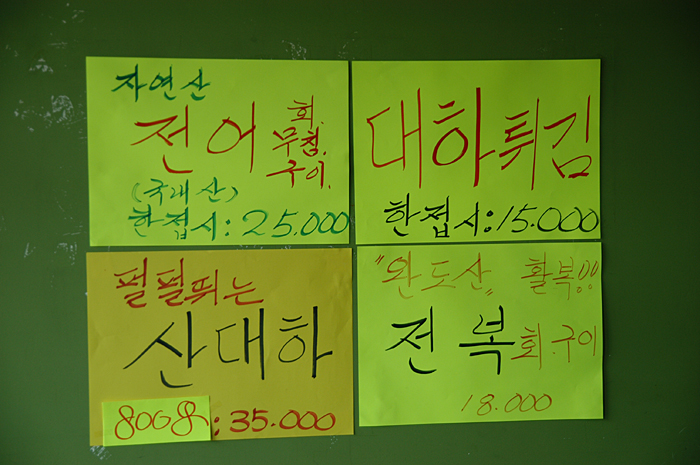 자연산
전어 회.
무침.
구이.
(국내산)
한접시: 25.000
대하튀김
한접시: 15.000
펄펄뛰는
산대하
800g: 35.000
"완도산" 활복!!
전복 회.구이
18.000